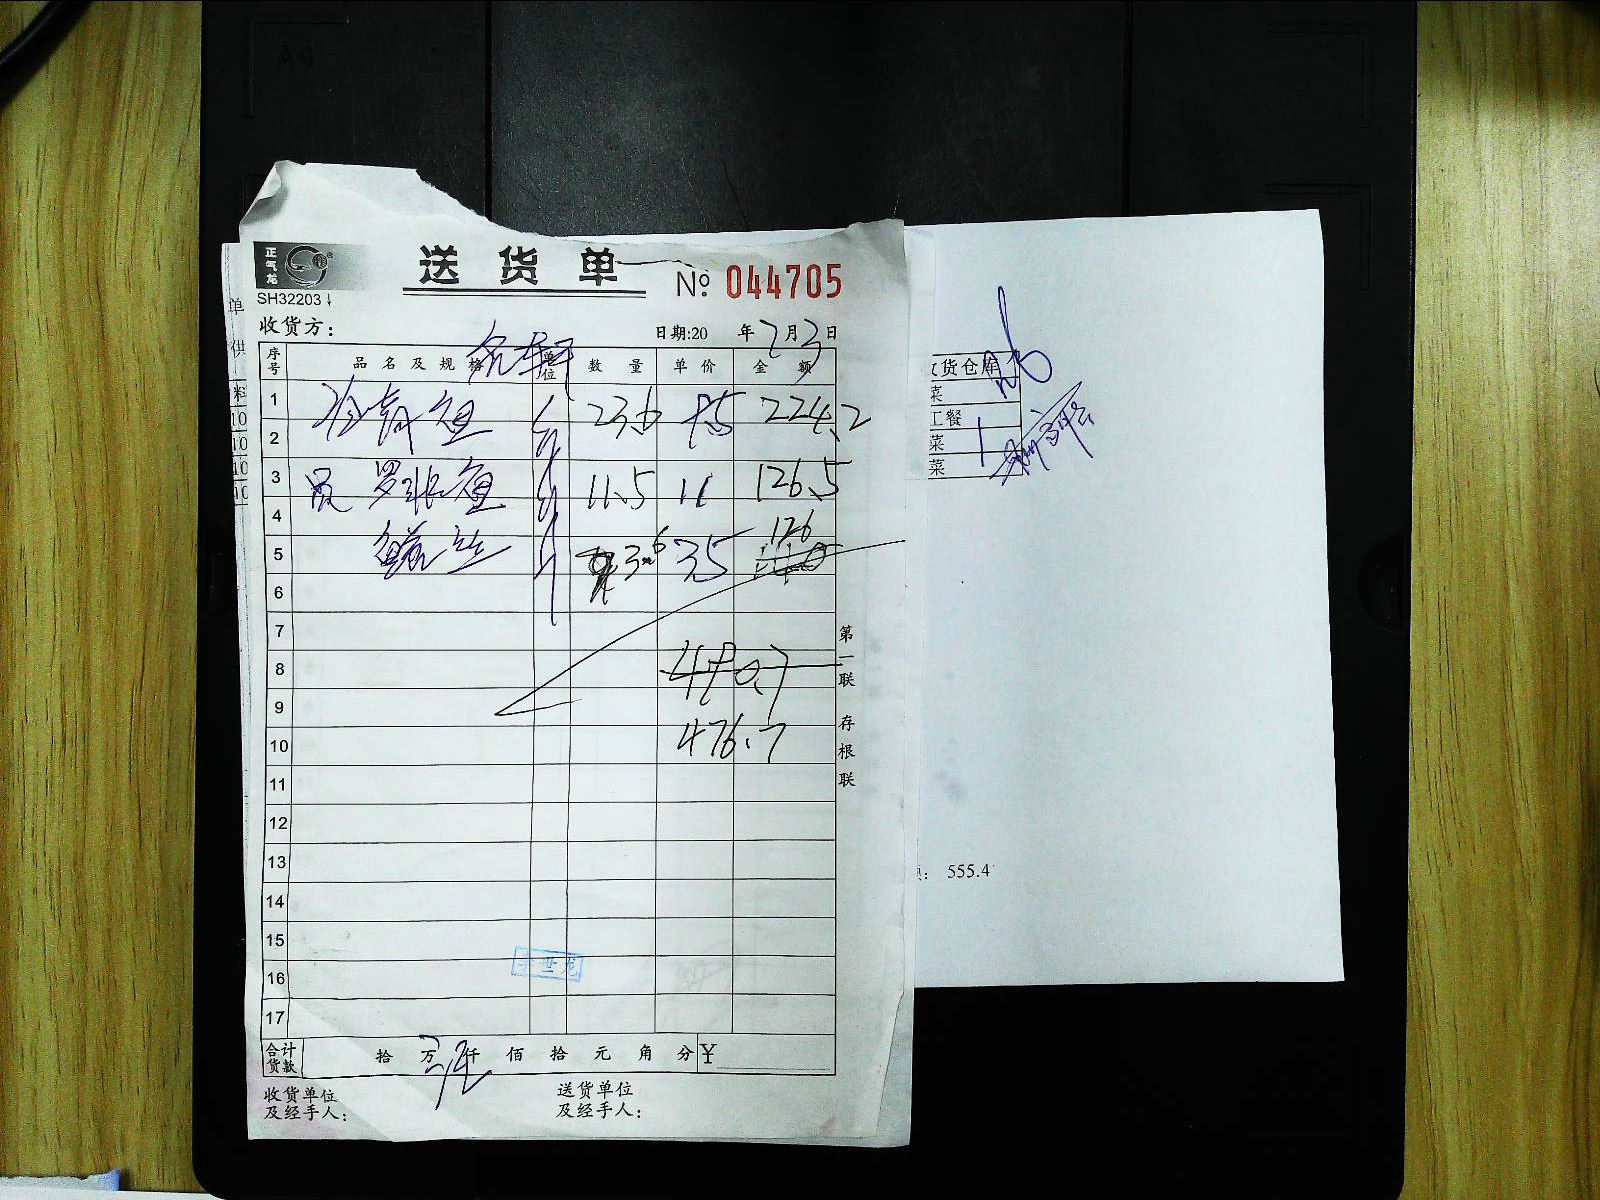 正气龙
SH32203
送 货 单
№ 044705
收货方：
日期:20 年 7月3日
序号 品名及规格 单位 数量 单价 金额
1
鱼 斤 23.6 9.5 224.2
2
3
罗非鱼 斤 11.5 11 126.5
4
鳝丝 斤 3.6 35 126
5
6
7
8
480.7
9
10
476.7
11
12
13
14
15
16
17
合计货款 拾 万 仟 佰 拾 元 角 分 ¥
收货单位
及经手人：
送货单位
及经手人：
第一联 存根联
单
供
料
10
10
10
10
收货仓库
菜
工餐
菜
菜
： 555.4